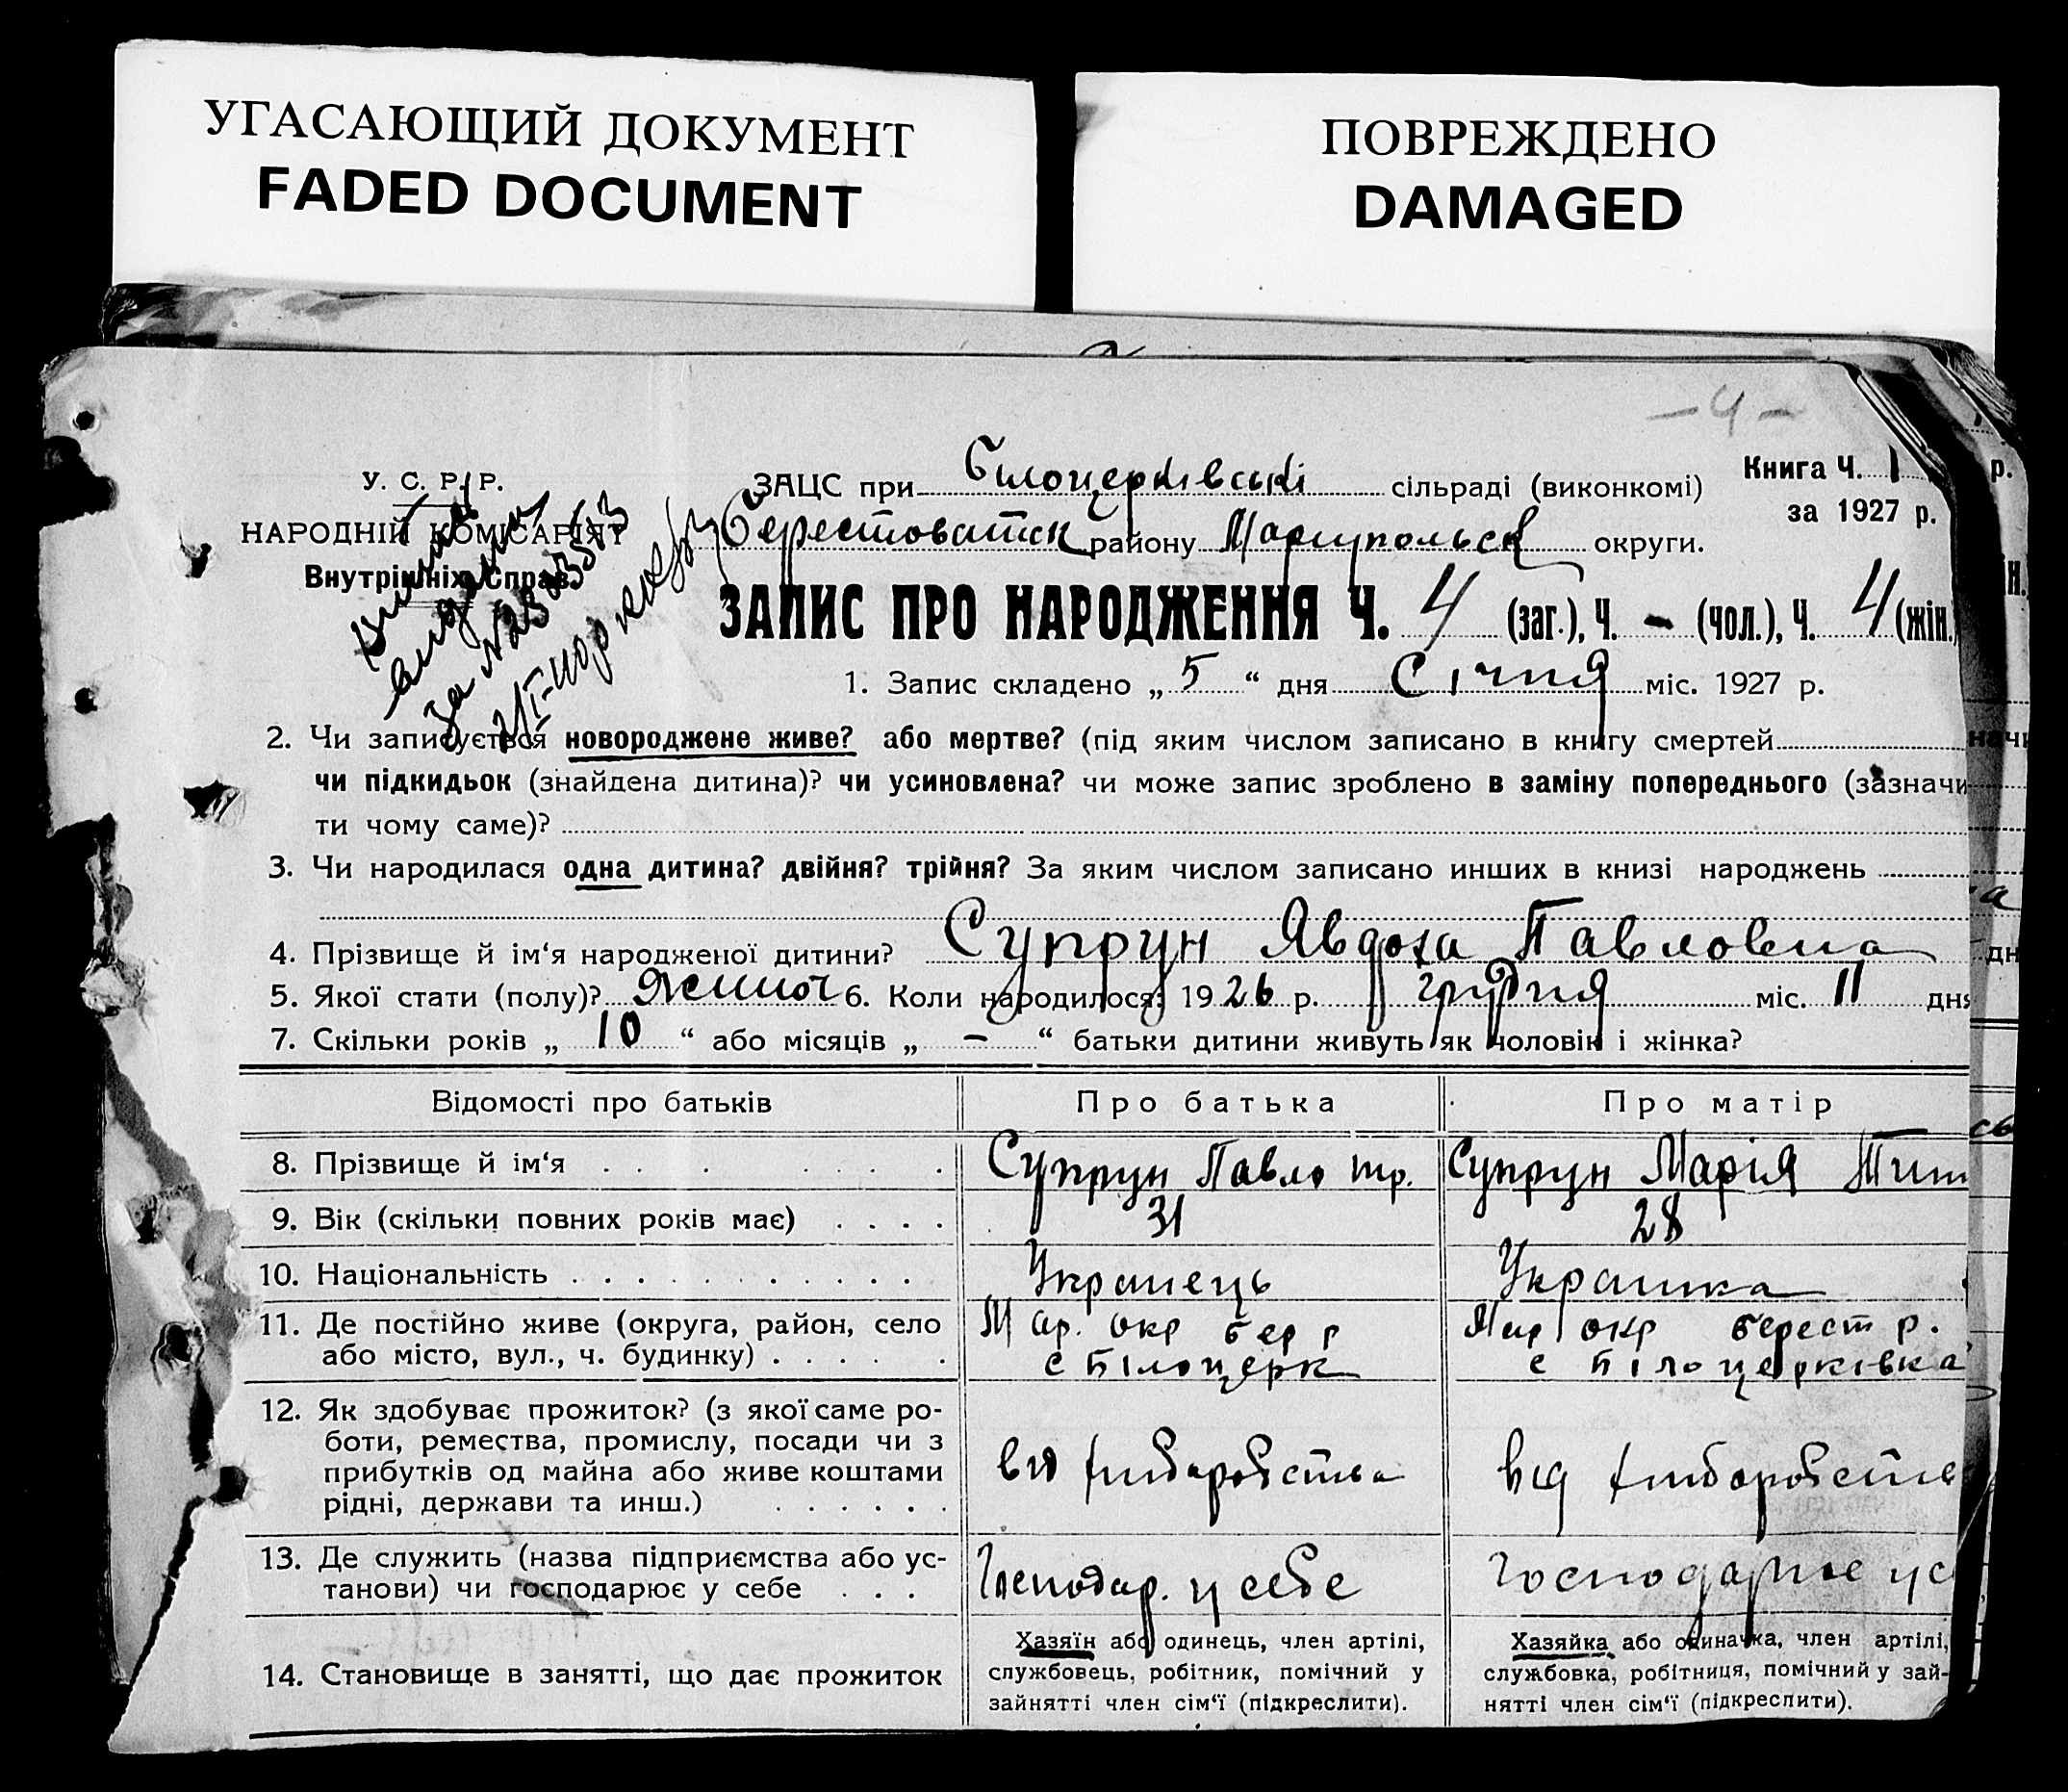 УГАСАЮЩИЙ ДОКУМЕНТ
FADED DOCUMENT
ПОВРЕЖДЕНО
DAMAGED
– 4 –
У. С. Р. Р.
НАРОДНІЙ КОМІСАРІЯТ
Внутрішніх Справ.
За №
ЗАЦС при Білоцерківські сільраді (виконкомі)
Берестоватск району Маріупольск округи.
Книга Ч. 1
за 1927 р.
р.
ЗАПИС ПРО НАРОДЖЕННЯ Ч. 4 (заг.), Ч. – (чол.), Ч. 4 (жін.)
1. Запис складено „ 5 “ дня Січня міс. 1927 р.
2. Чи записується новороджене живе? або мертве? (під яким числом записано в книгу смертей
чи підкидьок (знайдена дитина)? чи усиновлена? чи може запис зроблено в заміну попереднього (зазначи
ти чому саме)?
3. Чи народилася одна дитина? двійня? трійня? За яким числом записано инших в книзі народжень
4. Прізвище й ім‘я народженої дитини? Супрун Явдоха Павловна
5. Якої стати (полу)? жиноч 6. Коли народилося: 1926 р. грудня міс. 11 дня
7. Скільки років „ 10 “ або місяців „ – “ батьки дитини живуть як чоловік і жінка?
Відомості про батьків
Про батька
Про матір
8. Прізвище й ім‘я
Супрун Павло тр.
Супрун Марія Тит
9. Вік (скільки повних років має)
31
28
10. Національність
Украінець
Украинка
11. Де постійно живе (округа, район, село
або місто, вул., ч. будинку)
Мар. окр бер р
с Білоцерк
Мар окр берест р.
с Білоцерківка
12. Як здобуває прожиток? (з якої саме ро-
боти, ремества, промислу, посади чи з
прибутків од майна або живе коштами
рідні, держави та инш.)
від хлиборобства
від хлиборобств
13. Де служить (назва підприємства або ус-
танови) чи господарює у себе
Господар. у себе
Господарює у с
14. Становище в занятті, що дає прожиток
Хазяїн або одинець, член артілі,
службовець, робітник, помічний у
зайнятті член сім‘ї (підкреслити).
Хазяйка або одиначка, член артілі,
службовка, робітниця, помічний у зай-
нятті член сім‘ї (підкреслити).